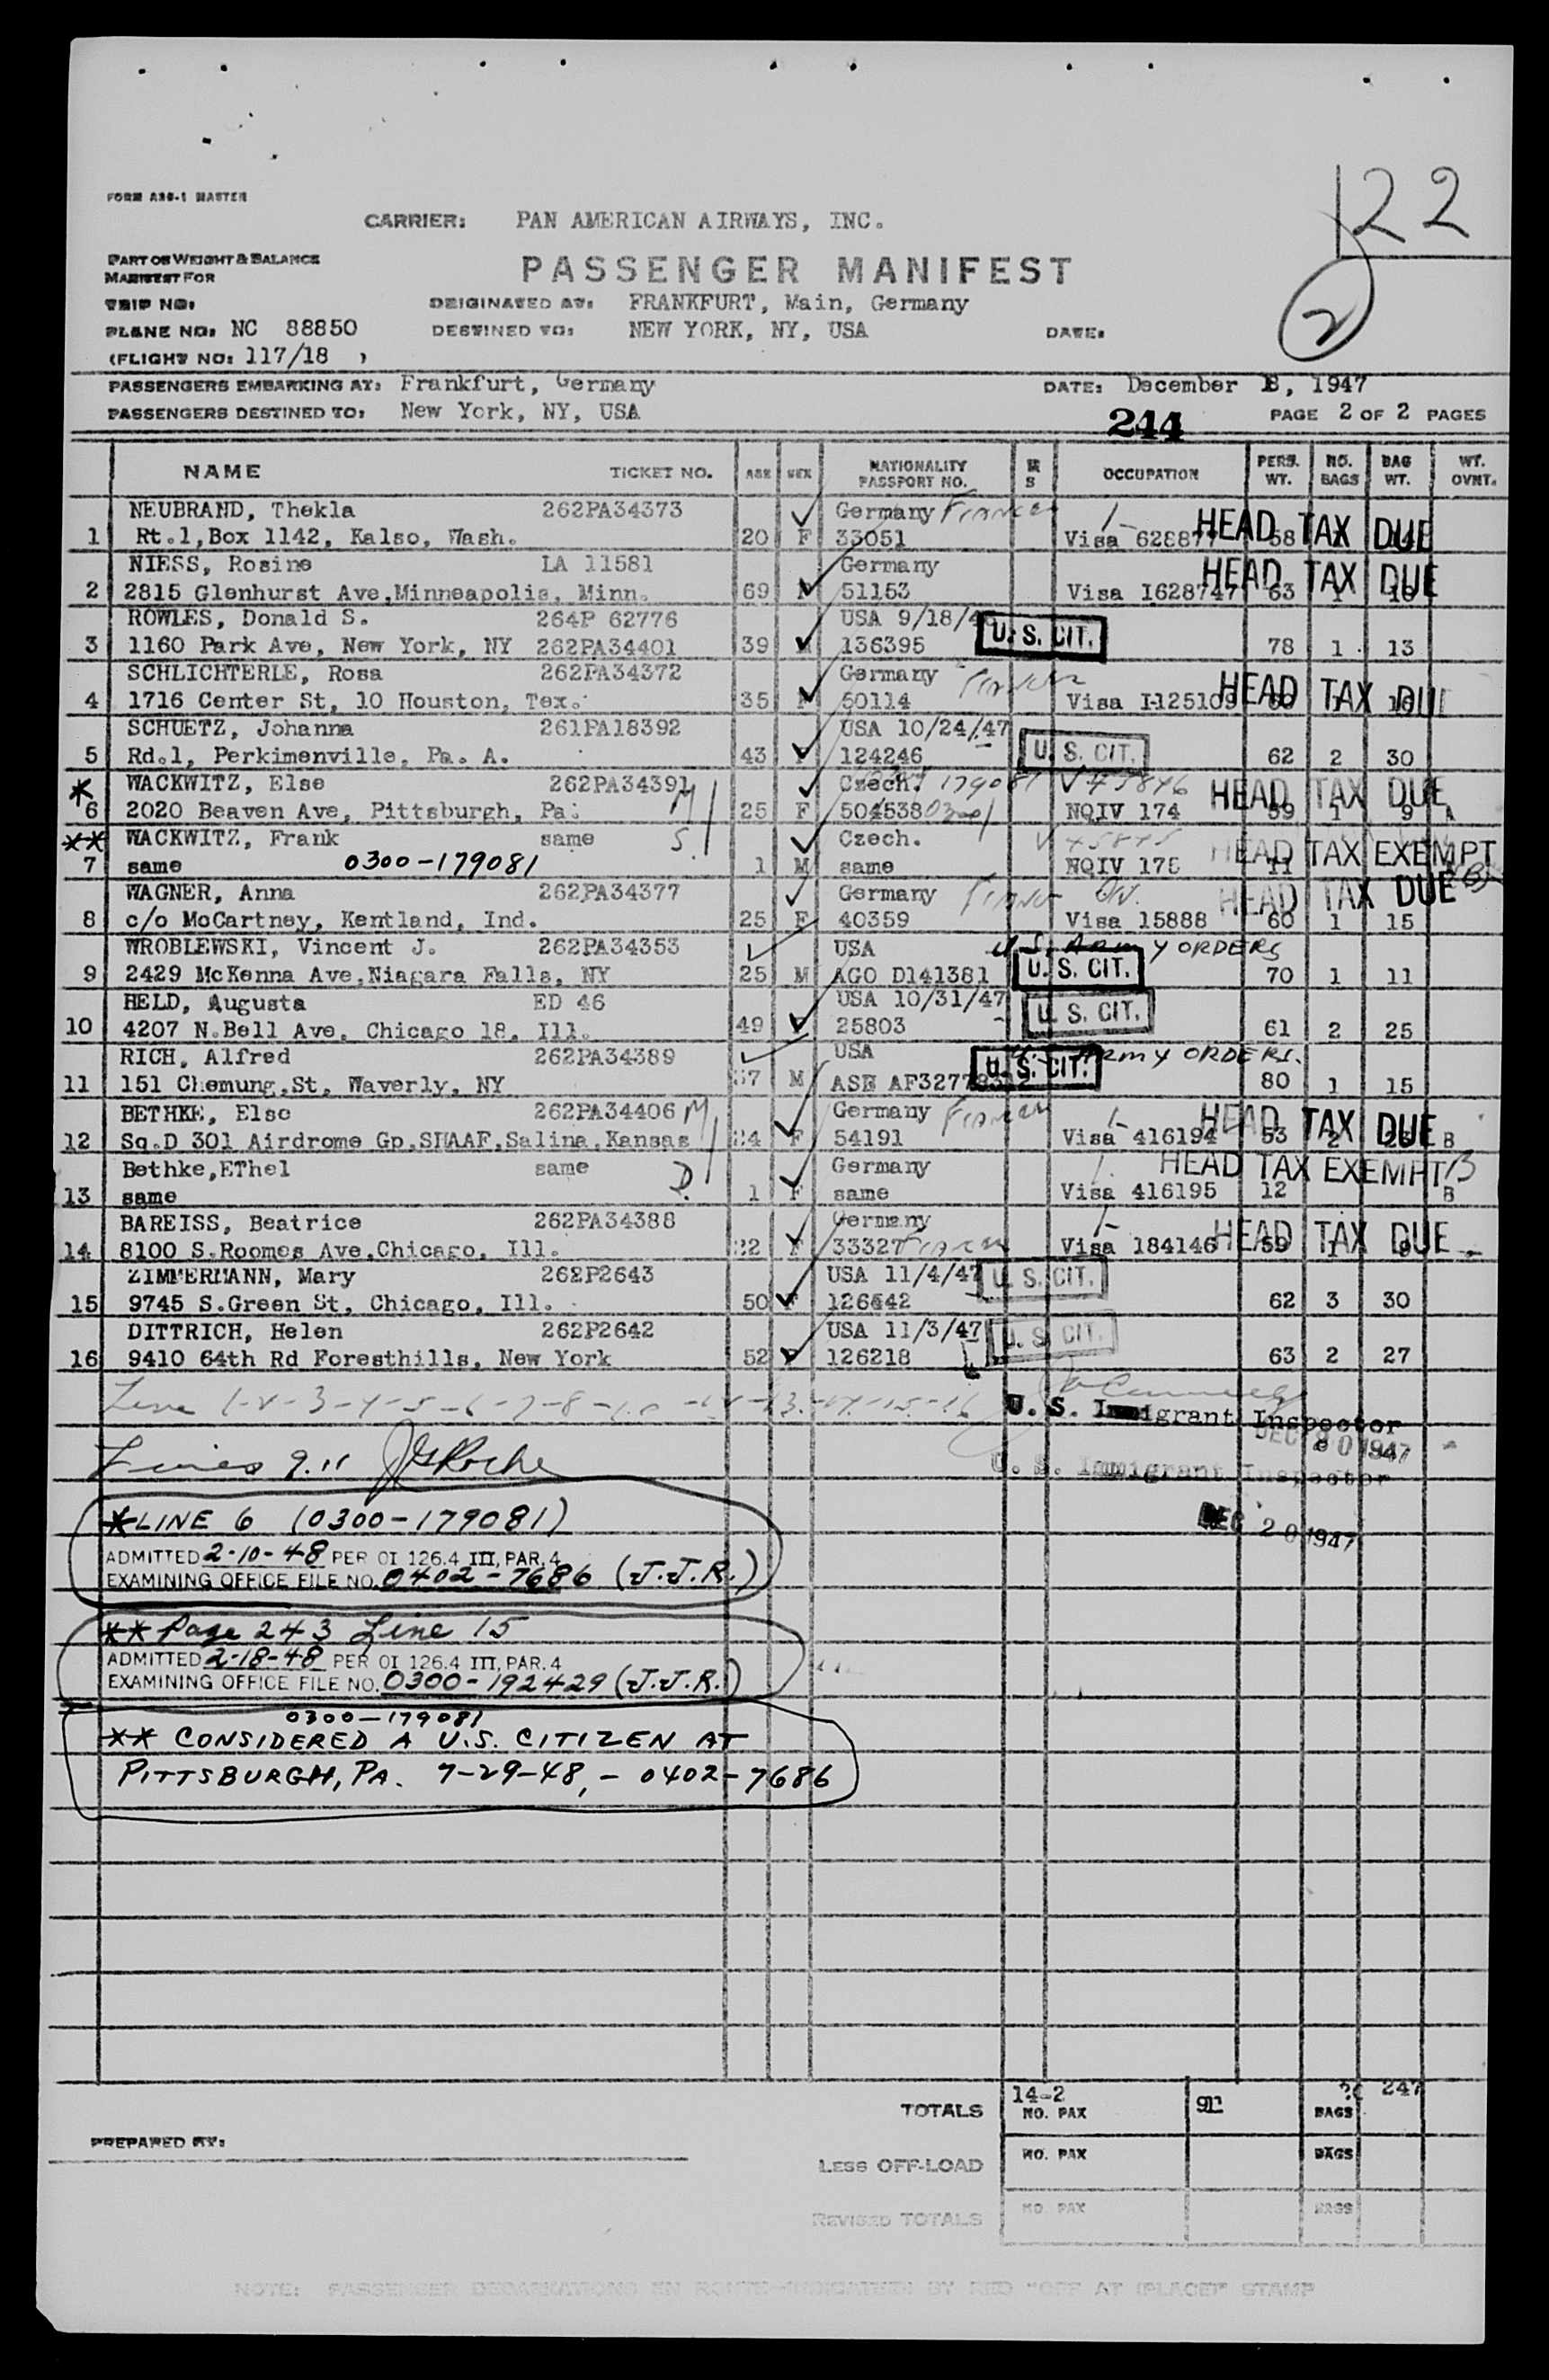 122
FORM A20-1 MASTER
CARRIER: PAN AMERICAN AIRWAYS, INC.
PART OF WEIGHT & BALANCE
MANIFEST FOR
PASSENGER MANIFEST
2
TRIP NO: ORIGINATED AT: FRANKFURT, Main, Germany
PLANE NO: NC 88850 DESTINED TO: NEW YORK, NY, USA DATE:
(FLIGHT NO: 117/18 )
PASSENGERS EMBARKING AT: Frankfurt, Germany DATE: December 18, 1947
PASSENGERS DESTINED TO: New York, NY, USA 244 PAGE 2 OF 2 PAGES
NAME TICKET NO. AGE SEX NATIONALITY PASSPORT NO. M S OCCUPATION PERS. WT. NO. BAGS BAG WT. WT. OVNT.
NEUBRAND, Thekla 262PA34373 Germany
1 Rt.1,Box 1142, Kalso, Wash. 20 F 33051 Visa 628877 58 HEAD TAX DUE
NIESS, Rosine LA 11581 Germany
2 2815 Glenhurst Ave,Minneapolis, Minn. 69 F 51153 Visa I628747 63 1 HEAD TAX DUE
ROWLES, Donald S. 264P 62776 USA 9/18/46 U. S. CIT.
3 1160 Park Ave, New York, NY 262PA34401 39 M 136395 78 1 13
SCHLICHTERLE, Rosa 262PA34372 Germany
4 1716 Center St, 10 Houston, Tex. 35 F 50114 Visa I-125109 HEAD TAX DUE
SCHUETZ, Johanna 261PA18392 USA 10/24/47 U. S. CIT.
5 Rd.1, Perkimenville, Pa. A. 43 F 124246 62 2 30
* WACKWITZ, Else 262PA34391 M Czech. 179081 V45846 HEAD TAX DUE
6 2020 Beaven Ave, Pittsburgh, Pa. 25 F 504538 0300/ NQIV 174 59 1 9 A
** WACKWITZ, Frank same S. Czech. V45845 HEAD TAX EXEMPT
7 same 0300-179081 1 M same NQIV 175 11
WAGNER, Anna 262PA34377 Germany HEAD TAX DUE
8 c/o McCartney, Kentland, Ind. 25 F 40359 Visa 15888 60 1 15
WROBLEWSKI, Vincent J. 262PA34353 USA U.S. ARMY ORDERS
9 2429 McKenna Ave,Niagara Falls, NY 25 M AGO D141381 U. S. CIT. 70 1 11
HELD, Augusta ED 46 USA 10/31/47 U. S. CIT.
10 4207 N.Bell Ave, Chicago 18, Ill. 49 F 25803 61 2 25
RICH, Alfred 262PA34389 USA U.S. ARMY ORDERS.
11 151 Chemung,St, Waverly, NY 37 M ASN U. S. CIT. 80 1 15
BETHKE, Else 262PA34406 M Germany HEAD TAX DUE
12 Sq.D 301 Airdrome Gp,SHAAF,Salina,Kansas 24 F 54191 Visa 416194 53 2 B
Bethke,EThel same D. Germany HEAD TAX EXEMPT B
13 same 1 F same Visa 416195 12 B
BAREISS, Beatrice 262PA34388 Germany HEAD TAX DUE
14 8100 S.Roomes Ave,Chicago, Ill. 22 F 33327 Visa 184146 59 1 9
ZIMMERMANN, Mary 262P2643 USA 11/4/47 U. S. CIT.
15 9745 S.Green St, Chicago, Ill. 50 F 126442 62 3 30
DITTRICH, Helen 262P2642 USA 11/3/47 U. S. CIT.
16 9410 64th Rd Foresthills, New York 52 F 126218 63 2 27
Line 1-2-3-4-5-6-7-8-10-12-13-14-15-16
U. S. Immigrant Inspector
DEC 20 1947
Lines 9.11 JGRoche
U. S. Immigrant Inspector
DEC 20 1947
*LINE 6 (0300-179081)
ADMITTED 2-10-48 PER OI 126.4 III, PAR. 4
EXAMINING OFFICE FILE NO. 0402-7686 (J.J.R.)
** Page 243 Line 15
ADMITTED 2-18-48 PER OI 126.4 III, PAR. 4
EXAMINING OFFICE FILE NO. 0300-192429 (J.J.R.)
0300-179081
** CONSIDERED A U.S. CITIZEN AT
PITTSBURGH, PA. 7-29-48, - 0402-7686
TOTALS 14-2 NO. PAX BAGS 247
PREPARED BY:
LESS OFF-LOAD NO. PAX BAGS
REVISED TOTALS NO. PAX BAGS
NOTE: PASSENGER DEBARKATIONS EN ROUTE INDICATED BY RED "OFF AT (PLACE)" STAMP